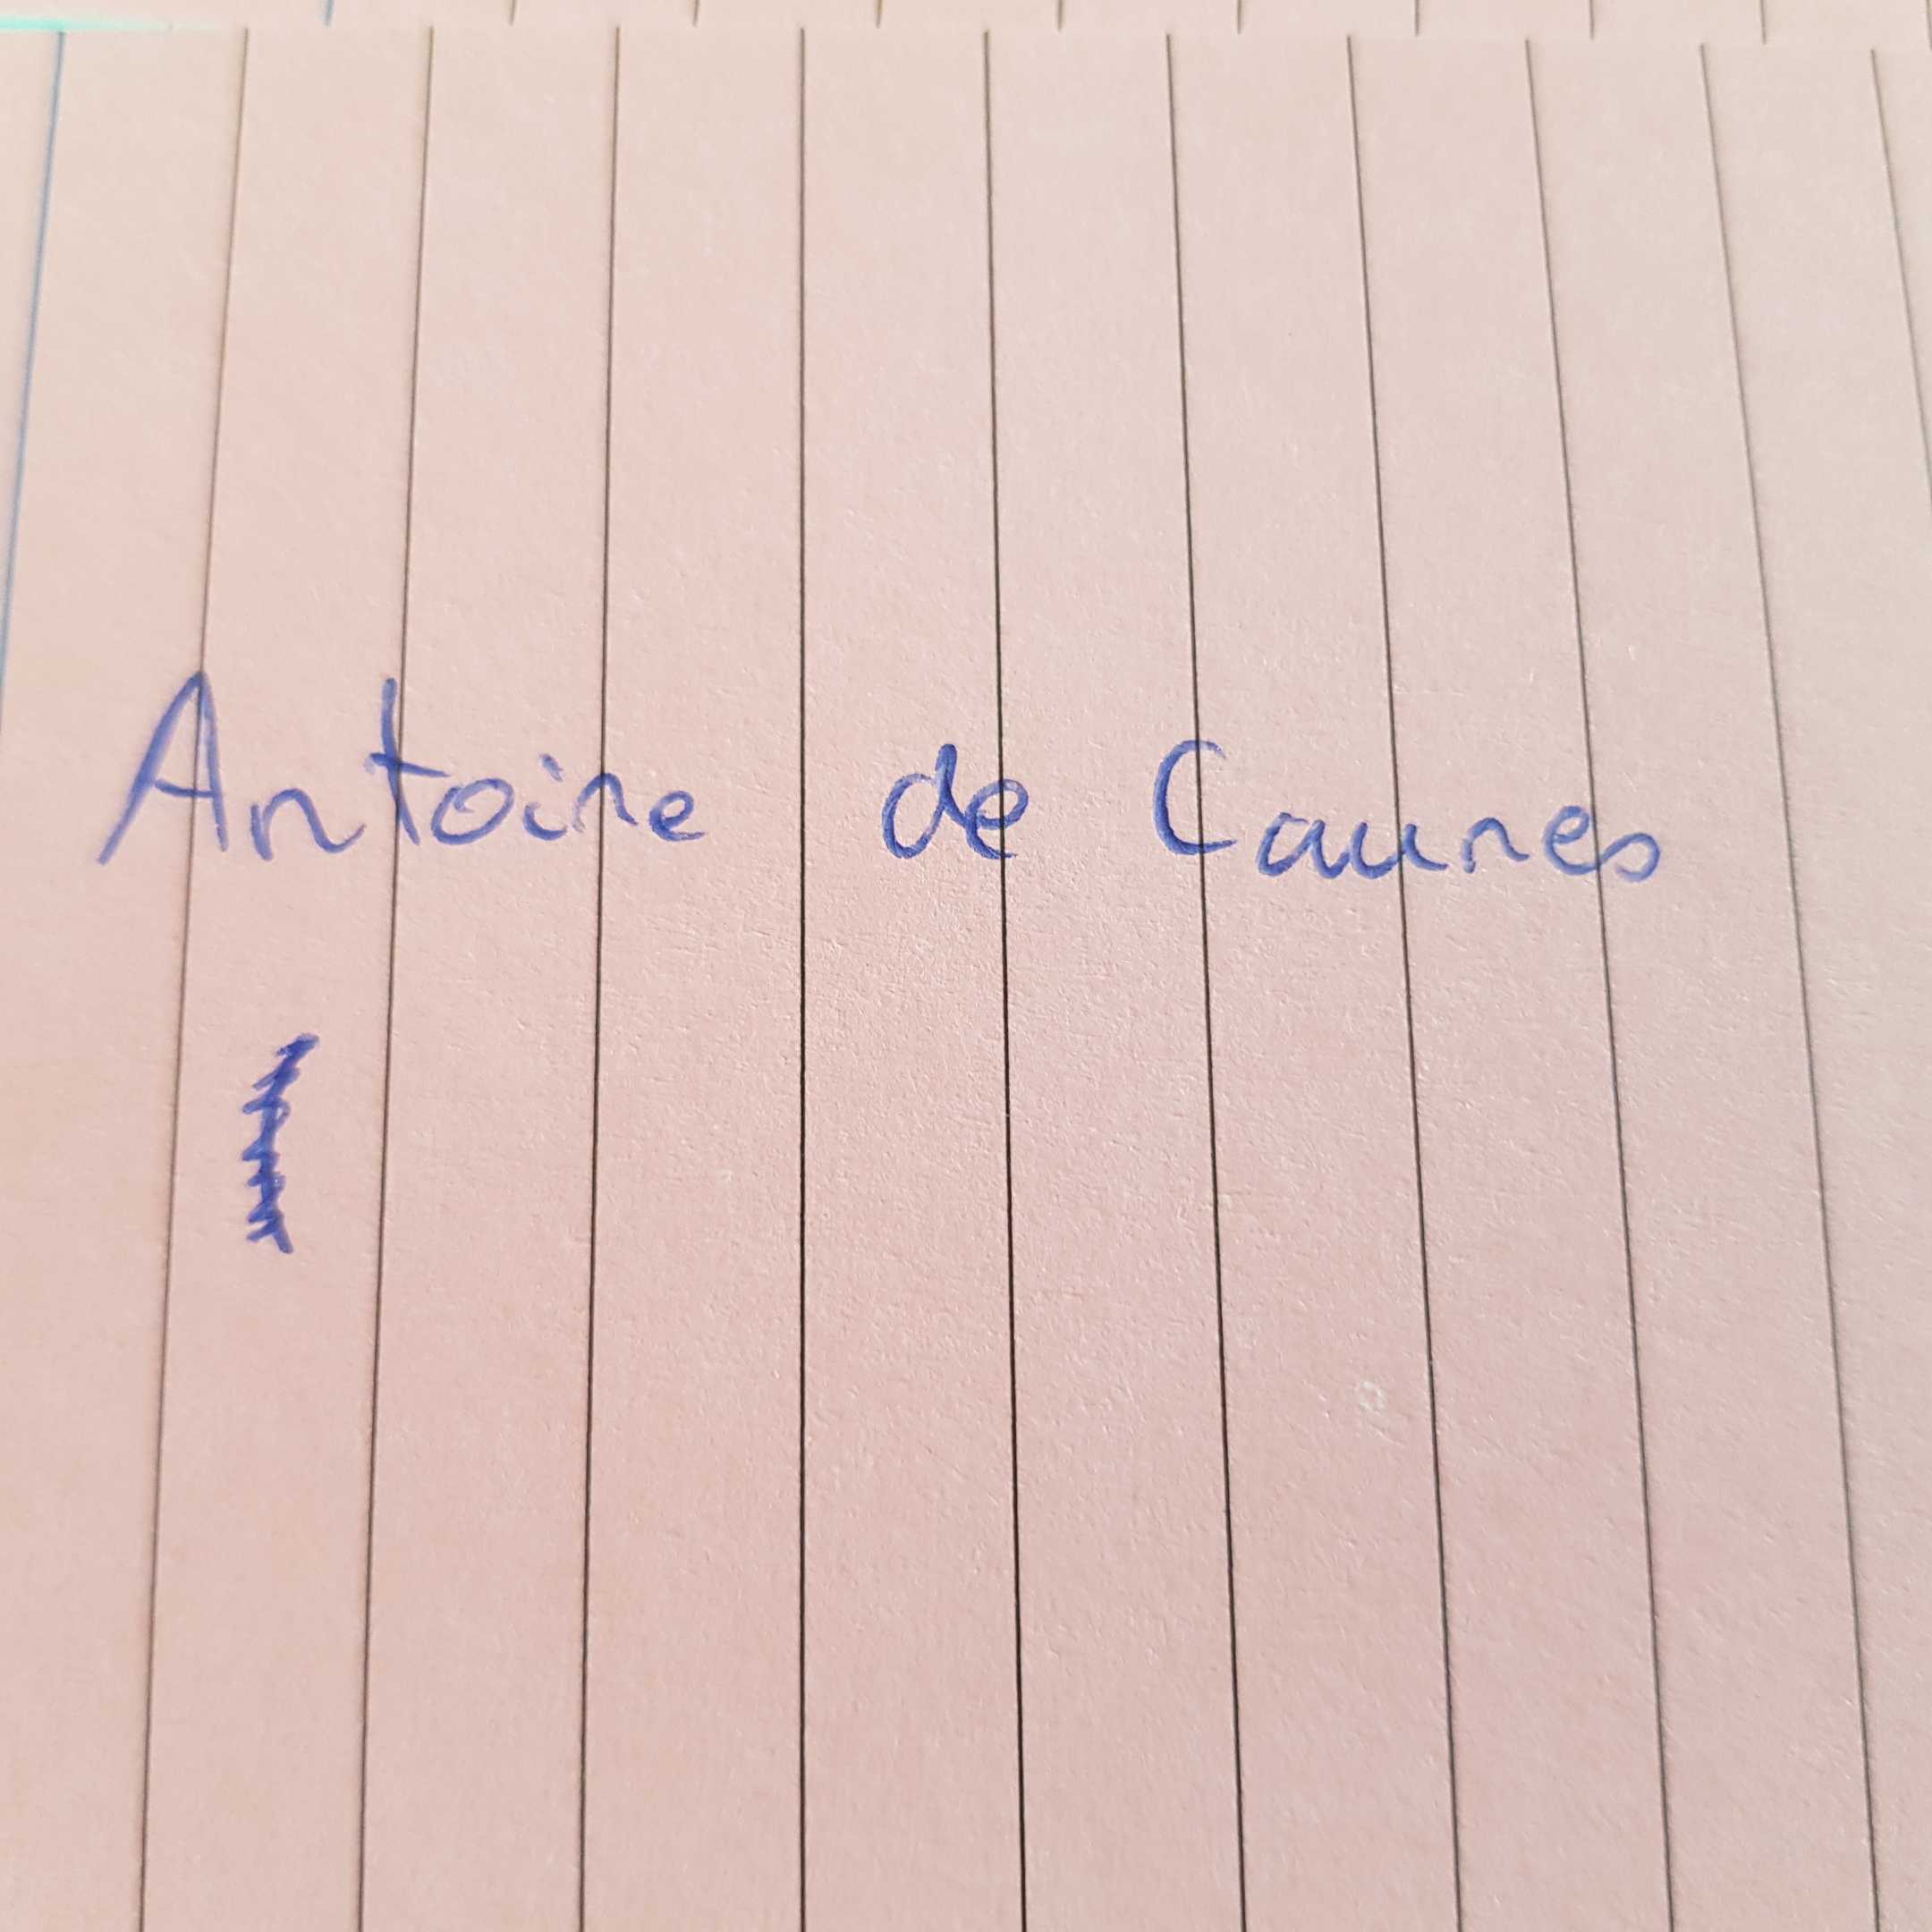 Antoine de Caunes